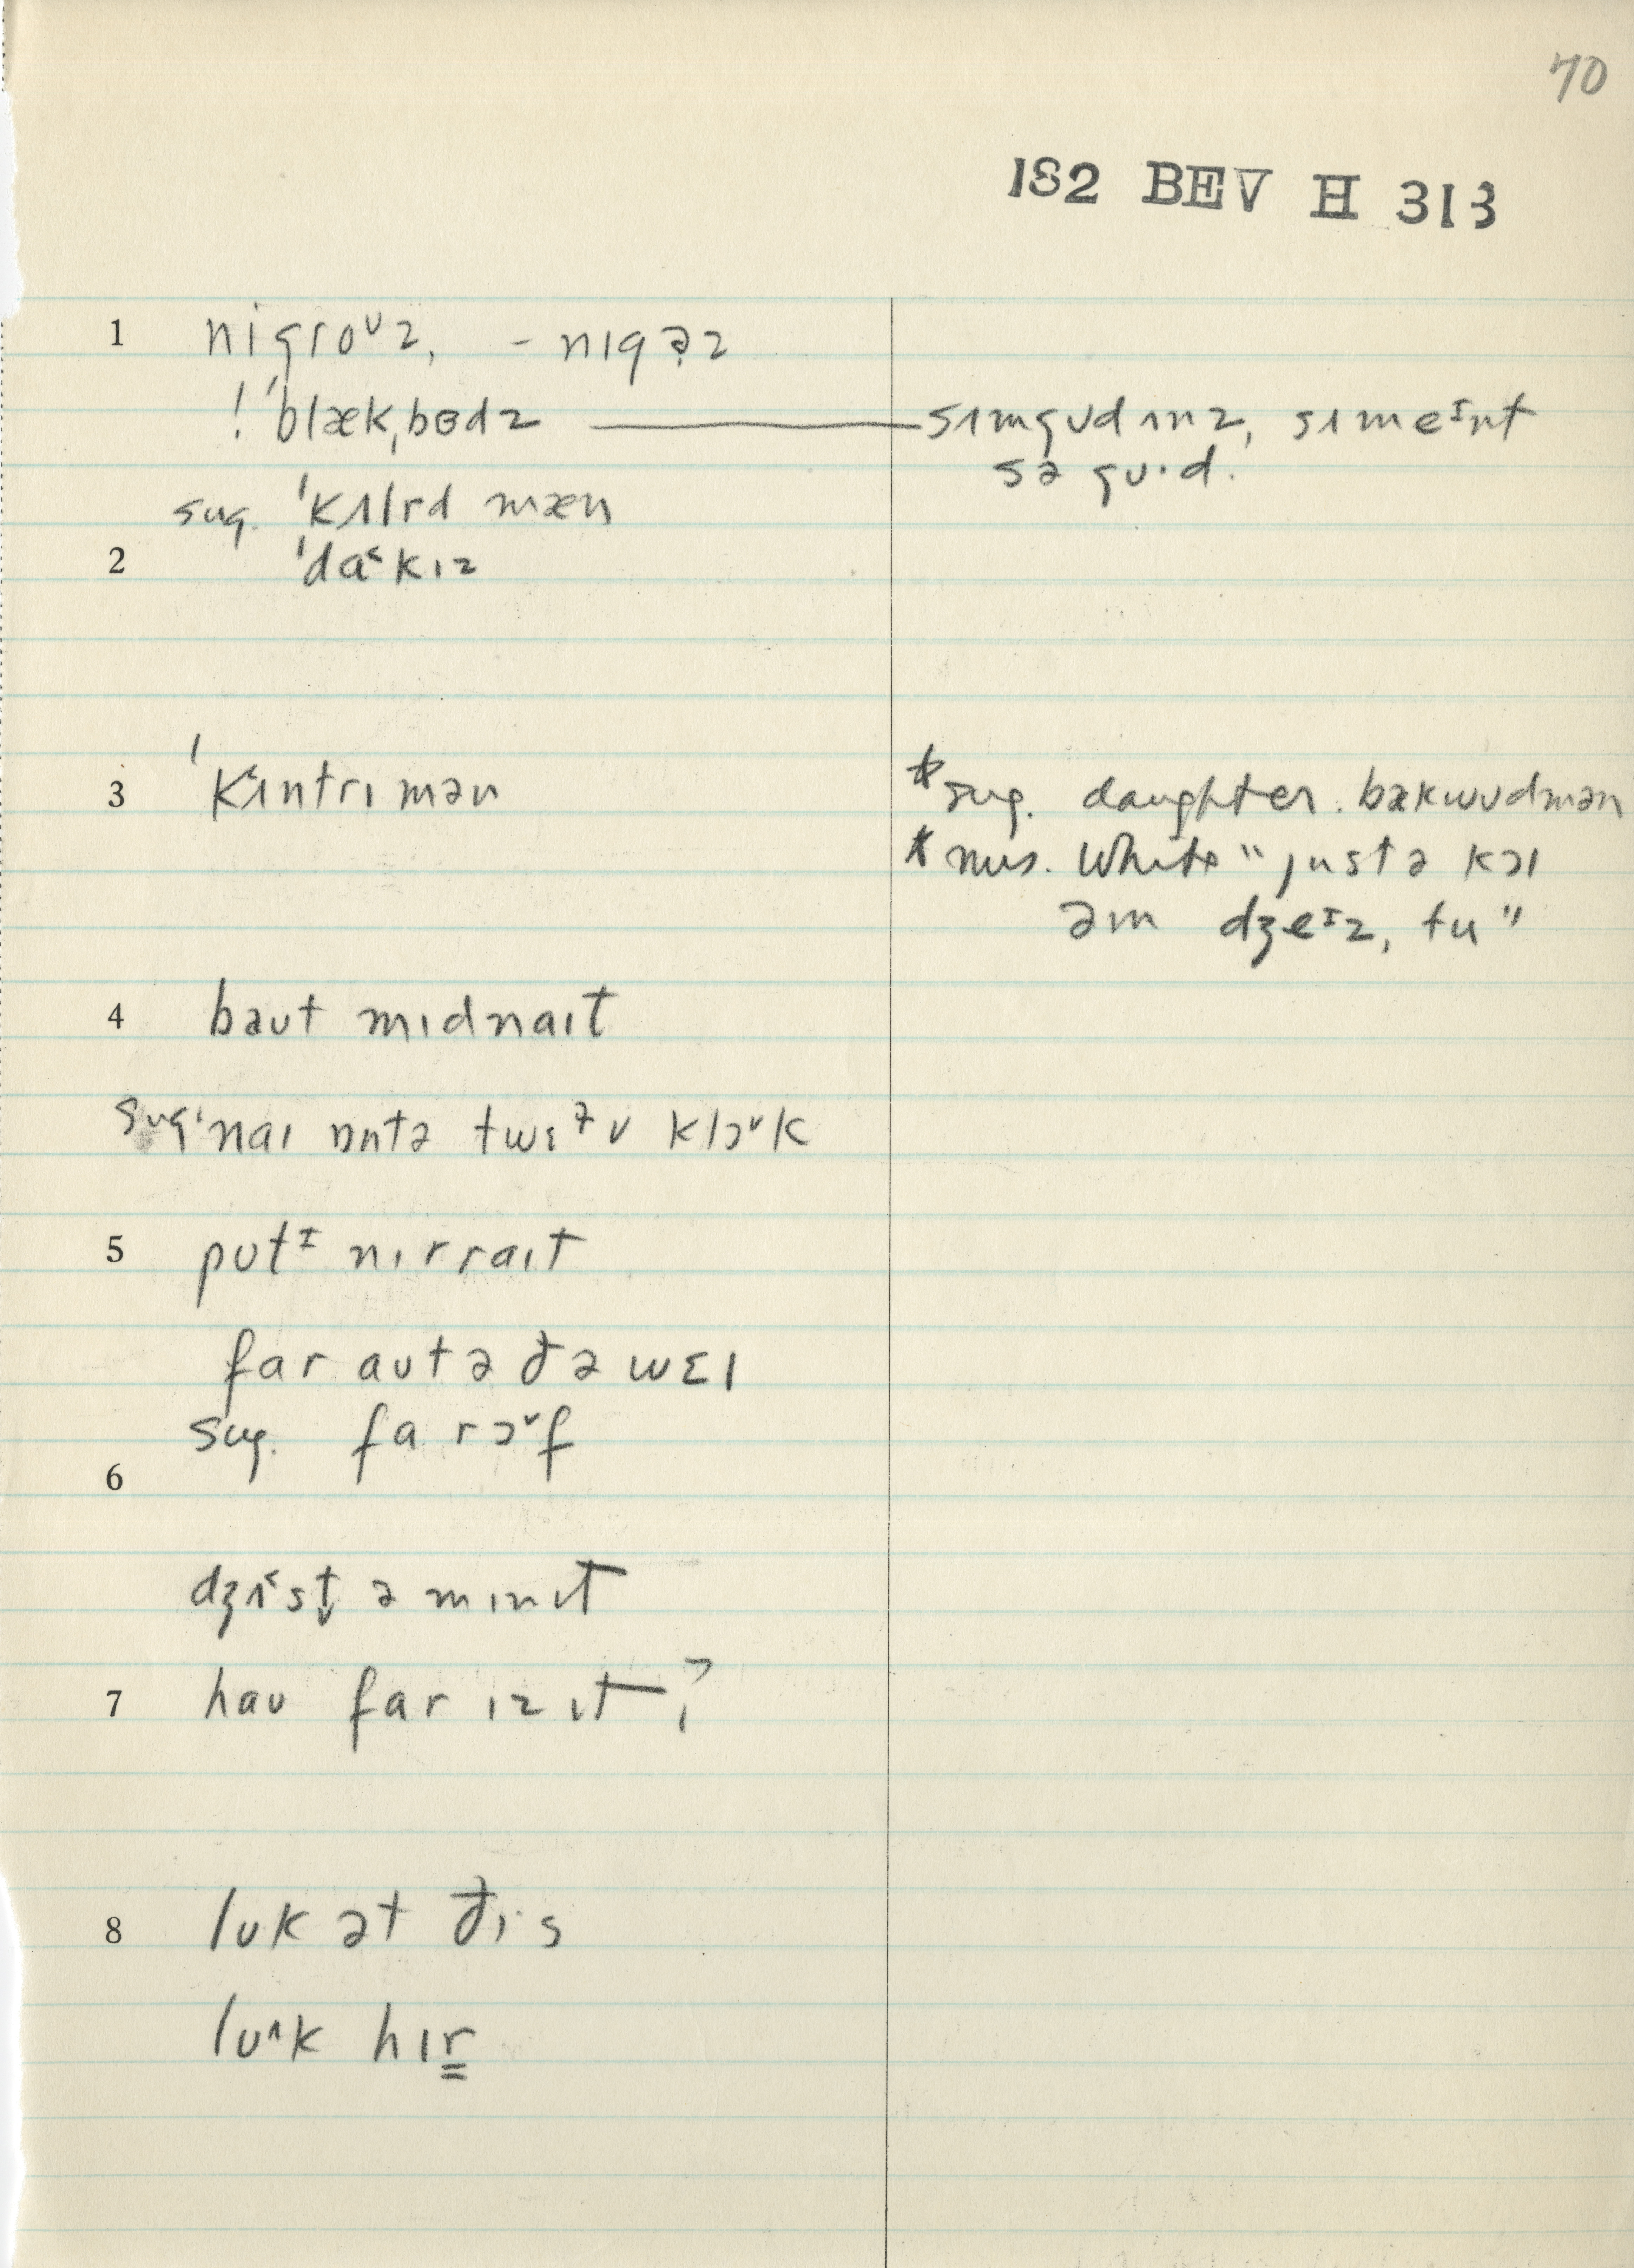 70
182 BEV H 313
1 nigroᶷz, - nɪgə̣z
! ˈblækˌbɵdz —— sʌmgʊd ʌnz, sʌmeᶦnt
sə gʊ·d.
sug. ˈkʌlrd mæn
2 ˈdɑ˂kɪz
3 ˈkʌ˂ntrɪmən
*sug. daughter. bækwʊdmən
* mrs. White "just ə kɔl
əm dʒeᶦz, tu"
4 baʊt mɪdnaɪt
sug. ˈnaɪ ɒntə twɛᵊʊ klɔˇk
5 pʊtᶦ nɪrraɪt
far aʊtə ðə wɛɪ
sug. fa rɔˇf
6
dʒʌ˂st̬ ə mɪnɪt
7 haʊ far ɪz ɪt?
8 lʊk ət ðɪ·s
lʊ˄k hɪr